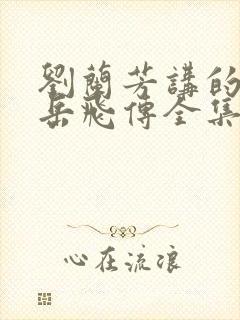 劉蘭芳講的
岳飛傳全集
心在流浪